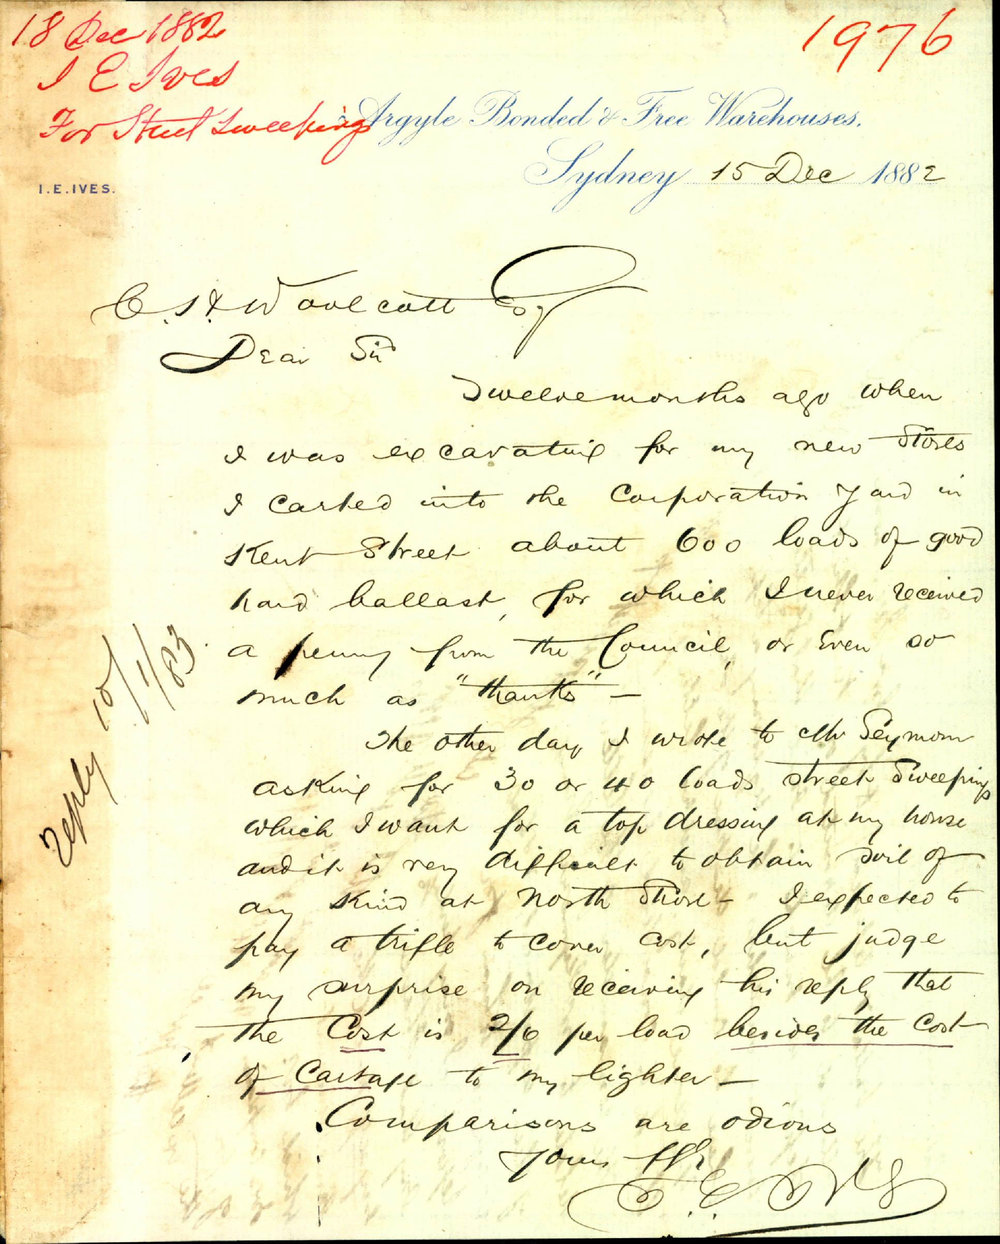 18 Dec 1882
I E Ives
For Street Sweepings
1976
Argyle Bonded & Free Warehouses.
Sydney 15 Dec 1882
I.E.IVES.
C. S. H Woolcott Esq
Dear Sir
Twelve months ago when
I was excavating for my new Stores
I carted into the Corporation Yard in
Kent Street about 600 loads of good
hard ballast, for which I never received
a penny from the Council, or even so
much as "thanks" —
The other day I wrote to Mr Seymour
asking for 30 or 40 loads street Sweepings
which I want for a top dressing at my house
and it is very difficult to obtain soil of
any kind at North Shore — I expected to
pay a trifle to cover cost, but judge
my surprise on receiving his reply that
the Cost is 2/6 per load besides the cost
of Cartage to my lighter —
Comparisons are odious
Yours
I. E. Ives
reply 10/1/83